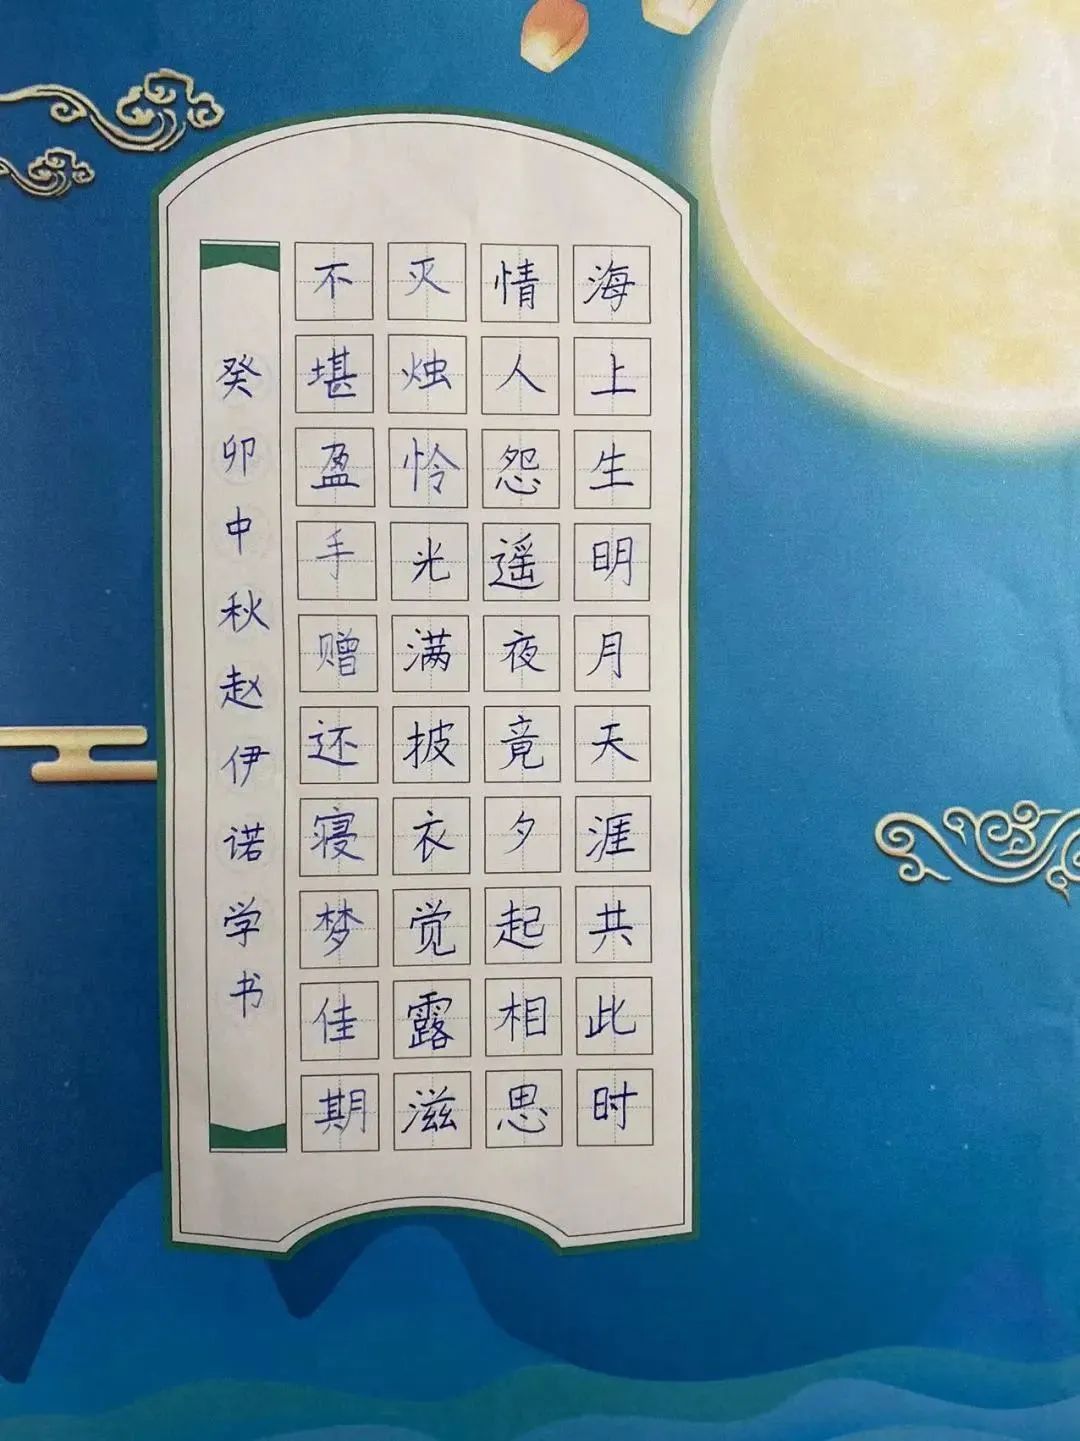 海上生明月天涯共此时
情人怨遥夜竟夕起相思
灭烛怜光满披衣觉露滋
不堪盈手赠还寝梦佳期
癸卯中秋赵伊诺学书